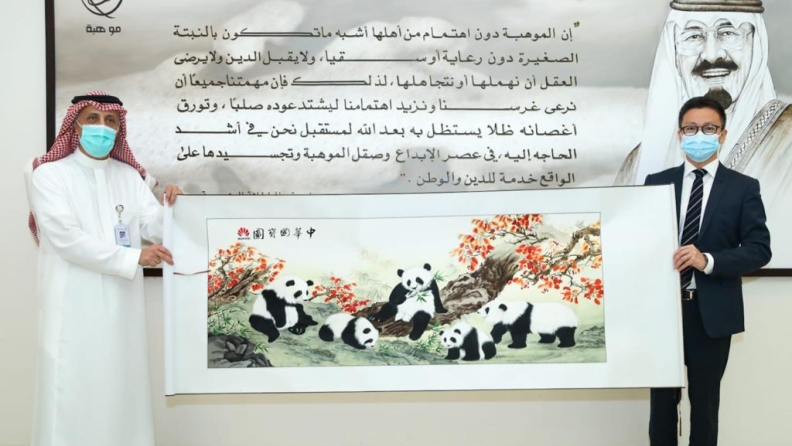 موهبة
"إن الموهبة دون اهتمام من أهلها أشبه ماتكون بالنبتة
الصغيرة دون رعاية أو سقيا، ولا يقبل الدين ولا يرضى
العقل أن نهملها أو نتجاهلها، لذلك فإن مهمتنا جميعاً أن
نرعى غرسنا ونزيد اهتمامنا ليشتد عوده صلباً، وتورق
أغصانه ظلا يستظل به بعد الله لمستقبل نحن في أشد
الحاجه إليه، في عصر الإبداع وصقل الموهبة وتجسيدها على
الواقع خدمة للدين والوطن."
HUAWEI
中華國寶圖